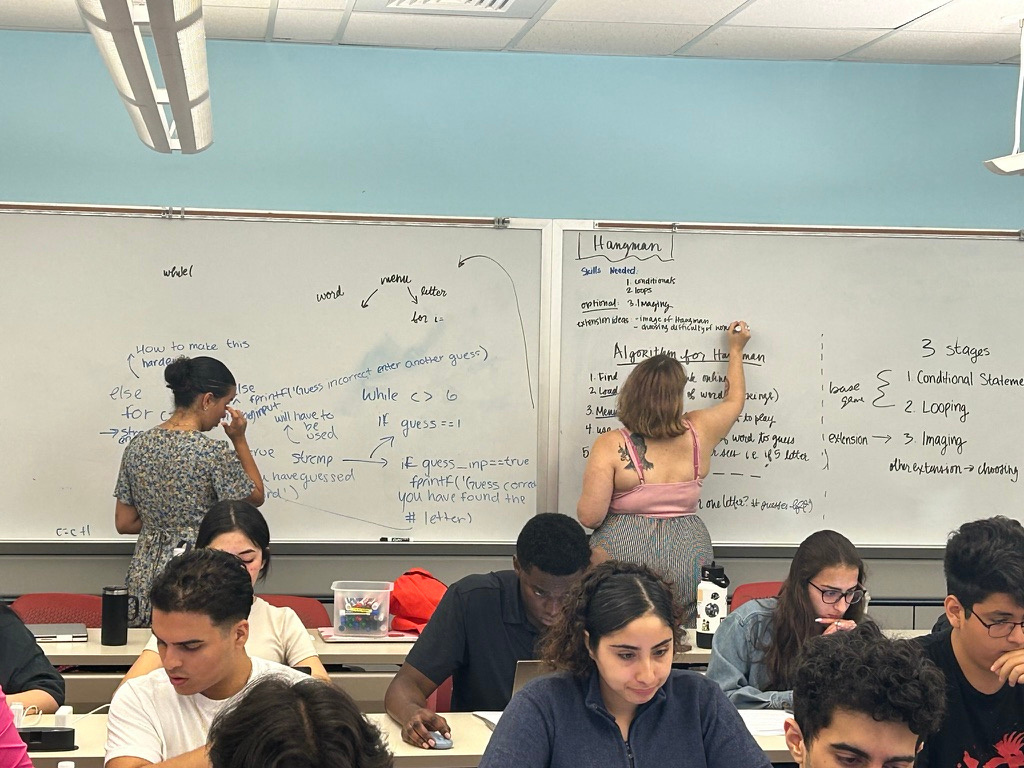 while(
menu
word
letter
for i=
How to make this
harder
else
for c
else
fprintf('Guess incorrect enter another guess)
input
will have to
be
used
true strcmp
have guessed
c=c+1
While c > 6
if guess ==1
if guess_inp==true
fprintf('Guess correct
you have found the
# letter)
Hangman
Skills Needed:
1. conditionals
2. loops
optional: 3. Imaging
extension ideas: - image of Hangman
- choosing difficulty of wor
Algorithm for Hangman
1. Find
2. Load of word
3. Menu to play
4. use of word to guess
5. i.e. if 5 letter
one letter?
3 stages
base
game
1. Conditional Stateme
2. Looping
extension → 3. Imaging
other extension → choosing